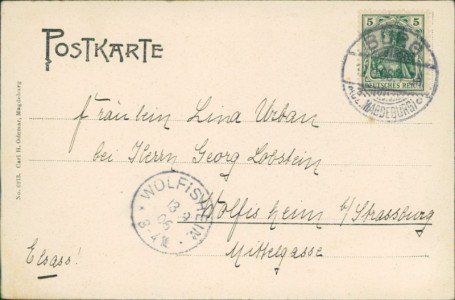 POSTKARTE
5 5
DEUTSCHES REICH
BURG
(BEZ. MAGDEBURG)
Fräulein Lina Urban
bei Herrn Georg Lobstein
Wolfisheim b/Strassburg
Mittelgasse
Elsass!
WOLFISHEIM
13
05
No. 6215. Carl H. Odemar, Magdeburg